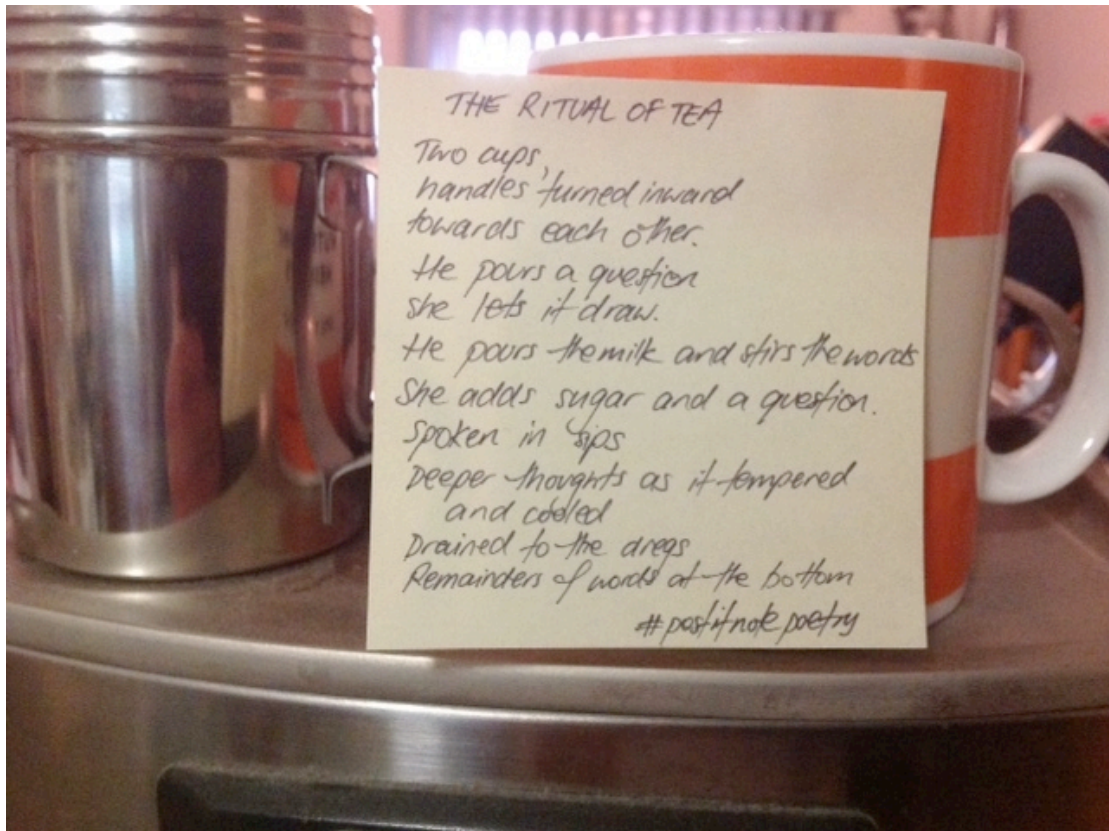 THE RITUAL OF TEA
Two cups,
handles turned inward
towards each other.
He pours a question
She lets it draw.
He pours the milk and stirs the words
She adds sugar and a question.
Spoken in sips
Deeper thoughts as it tempered
and cooled
Drained to the dregs
Remainders of words at the bottom
#postitnotepoetry